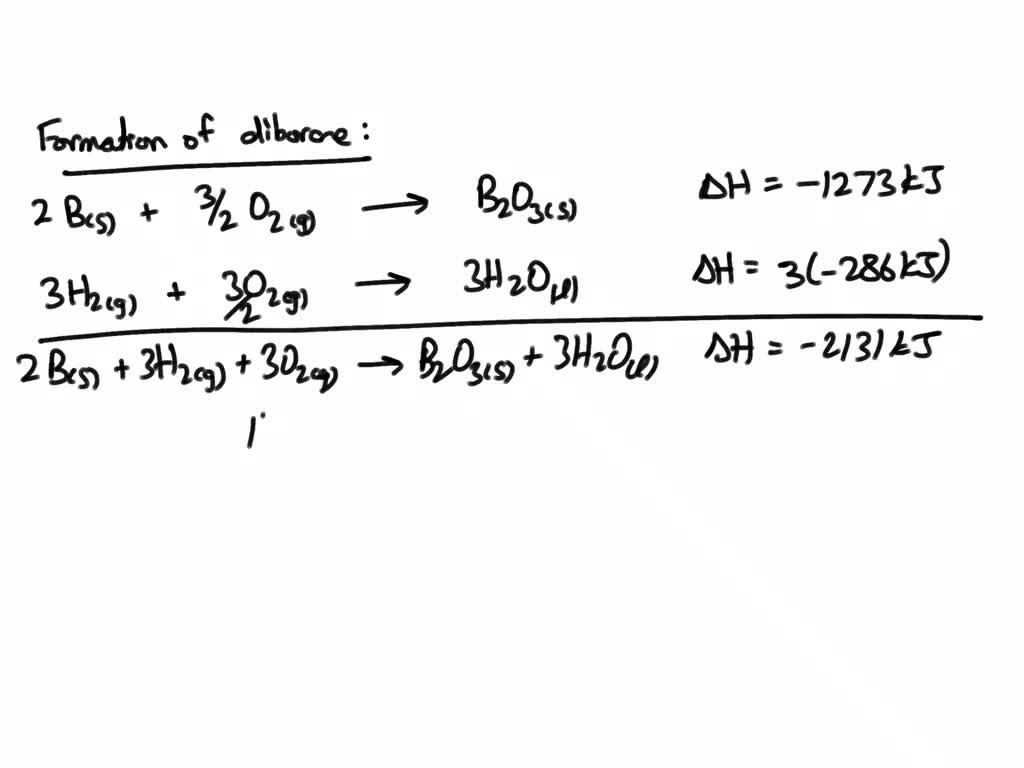 Formation of diborane:
2 B(s) + 3/2 O2(g) → B2O3(s) ΔH = -1273 kJ
3H2(g) + 3/2 O2(g) → 3H2O(l) ΔH = 3(-286 kJ)
2B(s) + 3H2(g) + 3O2(g) → B2O3(s) + 3H2O(l) ΔH = -2131 kJ